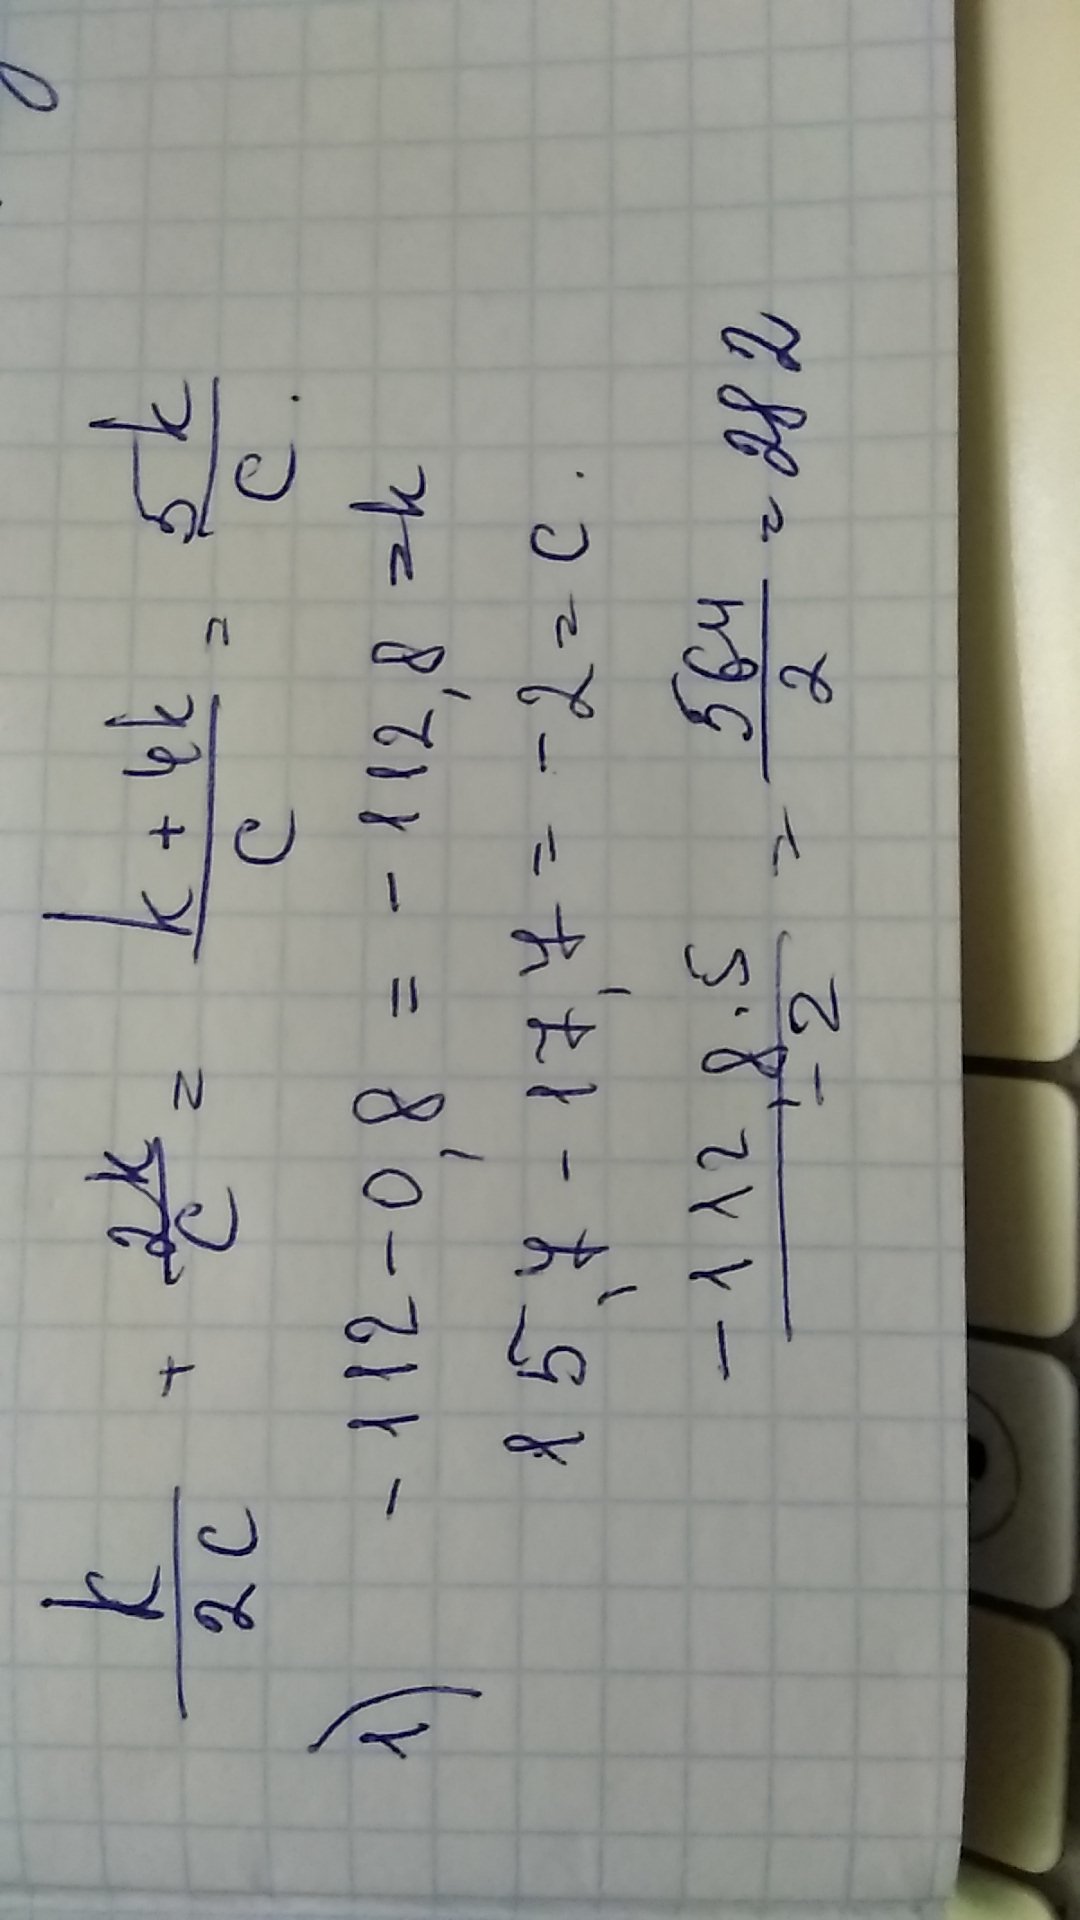 k/2C + 2k/C = (k + 4k)/C = 5k/C.
1) -112 - 0,8 = -112,8 = k
15,7 - 17,7 = -2 = C.
(-112,8·5)/(-2) = 564/2 = 282